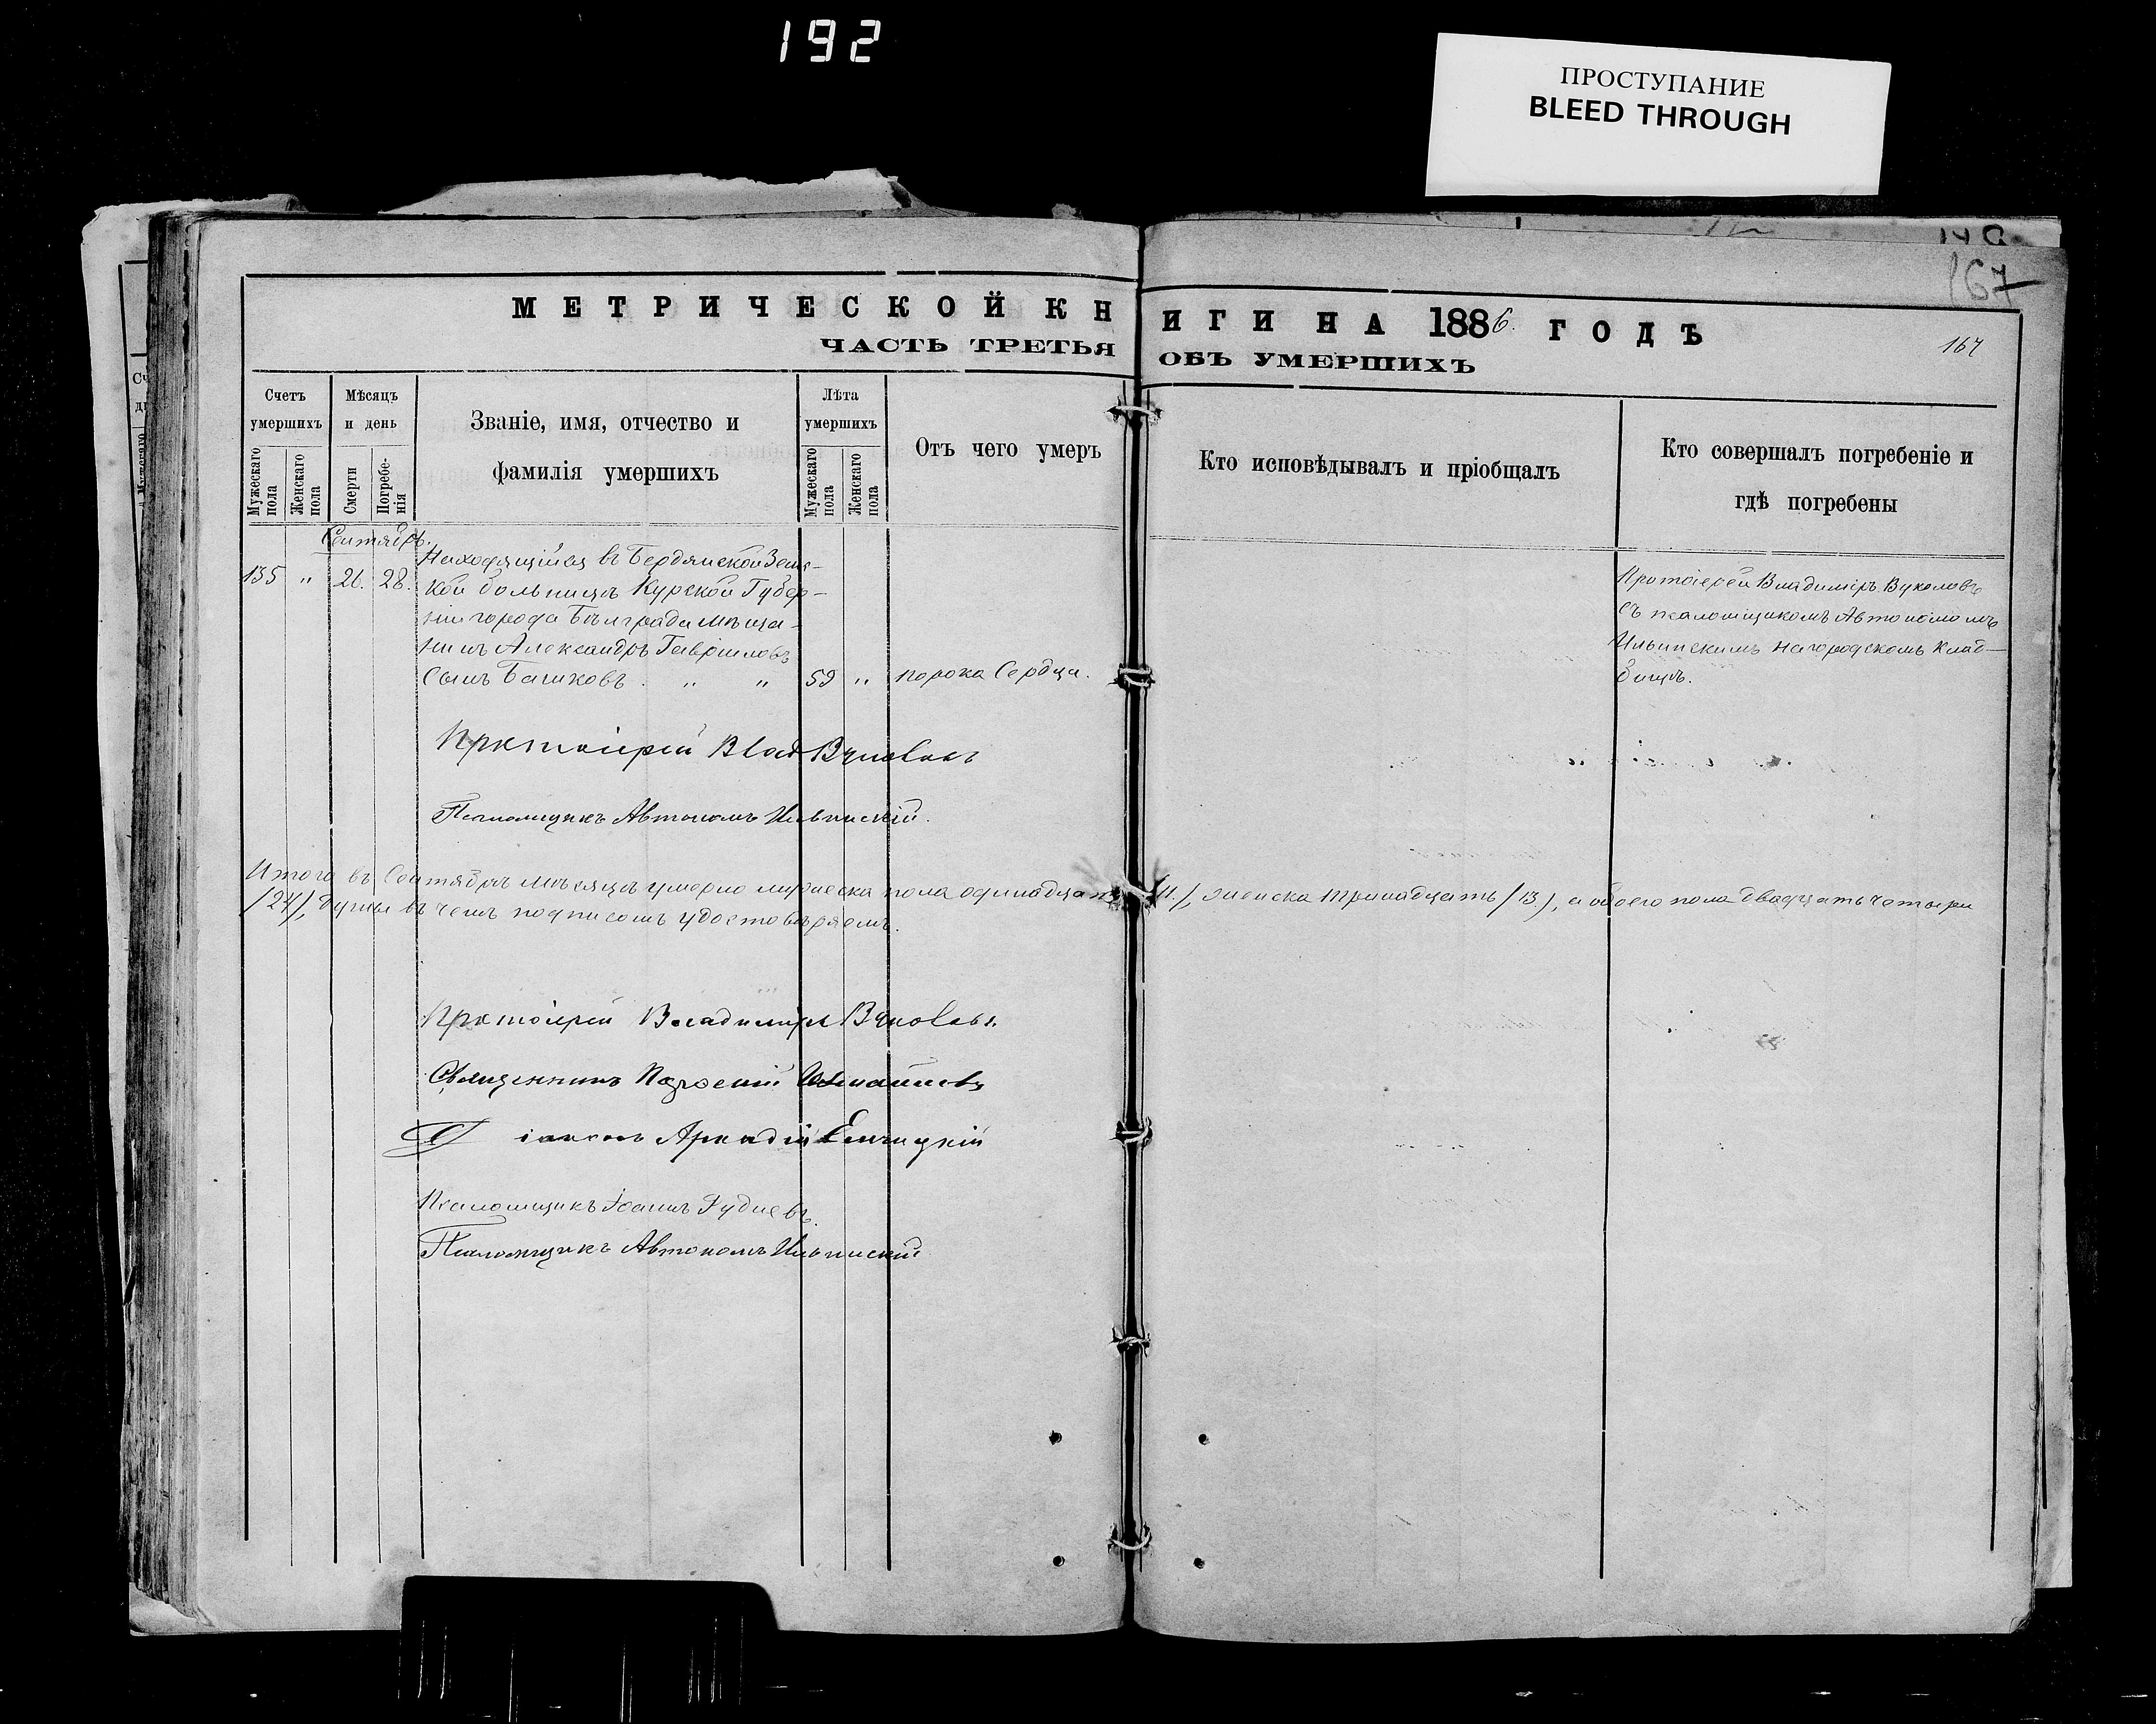 192
ПРОСТУПАНИЕ
BLEED THROUGH
167
МЕТРИЧЕСКОЙ КНИГИ НА 1886. ГОДЪ
ЧАСТЬ ТРЕТЬЯ ОБЪ УМЕРШИХЪ
167
Счетъ умершихъ
Мужескаго пола
Женскаго пола
Мѣсяцъ и день
Смерти
Погребенія
Званіе, имя, отчество и фамилія умершихъ
Лѣта умершихъ
Мужескаго пола
Женскаго пола
Отъ чего умеръ
Кто исповѣдывалъ и пріобщалъ
Кто совершалъ погребеніе и гдѣ погребены
Сентябрь.
135 " 26. 28.
Находящійся въ Бердянской Земс-
кой больницѣ Курской Губер-
ніи города Бѣлграда мѣща-
нинъ Александръ Гавріиловъ
сынъ Башковъ . " " 59 " порока Сердца.
Протоіерей Владиміръ Вуколовъ
съ псаломщикомъ Автономомъ
Ильинскимъ на городскомъ клад-
бищѣ.
Протоіерей Влад Вуколовъ
Псаломщикъ Автономъ Ильинскій.
Итого въ Сентябрѣ мѣсяцѣ умерло мужеска пола одинадцать /11./, женска тринадцать /13/, а обоего пола двадцать четыре
/24/, душы въ чемъ подписомъ удостовѣряемъ.
Протоіерей Владиміръ Вуколовъ.
Священникъ
Діаконъ Аркадій Енчицкій
Псаломщикъ Іоаннъ Рудневъ.
Псаломщикъ Автономъ Ильинскій